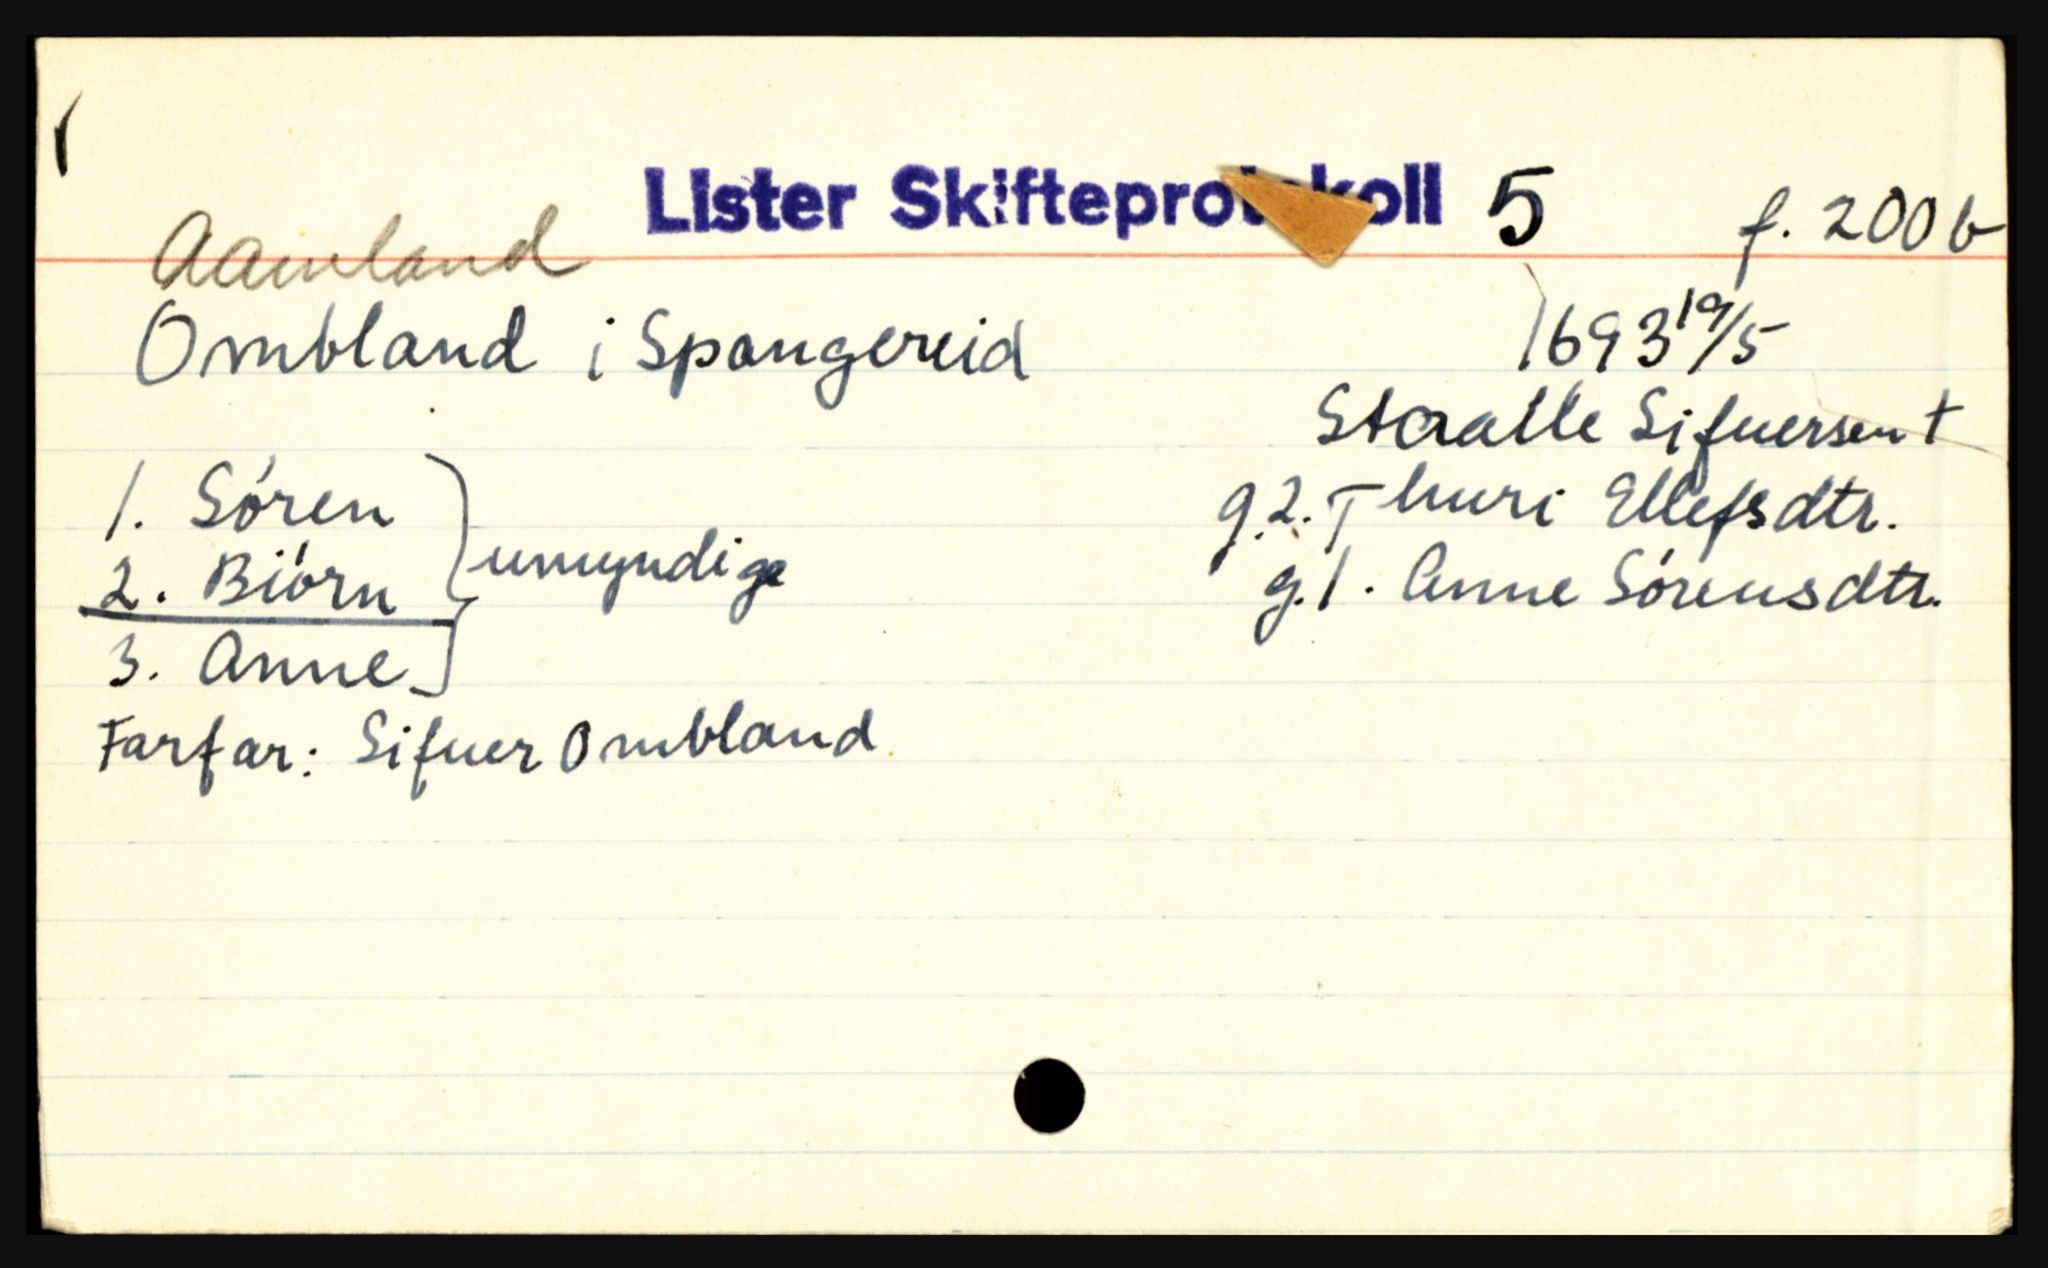 Lister Skifteprotokoll 5 f. 200 b
Aamland
Ombland i Spangereid 1693 19/5
Staalle Sifuersen †
1. Sören
2. Biörn
umyndige
3. Anne
g. 2. Thuri Ellefsdtr.
g. 1. Anne Sörensdtr.
Farfar: Sifuer Ombland